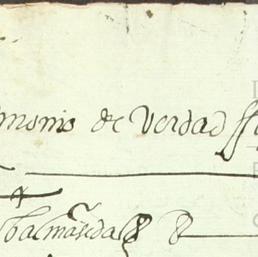 monio de Verdad
Balmaseda